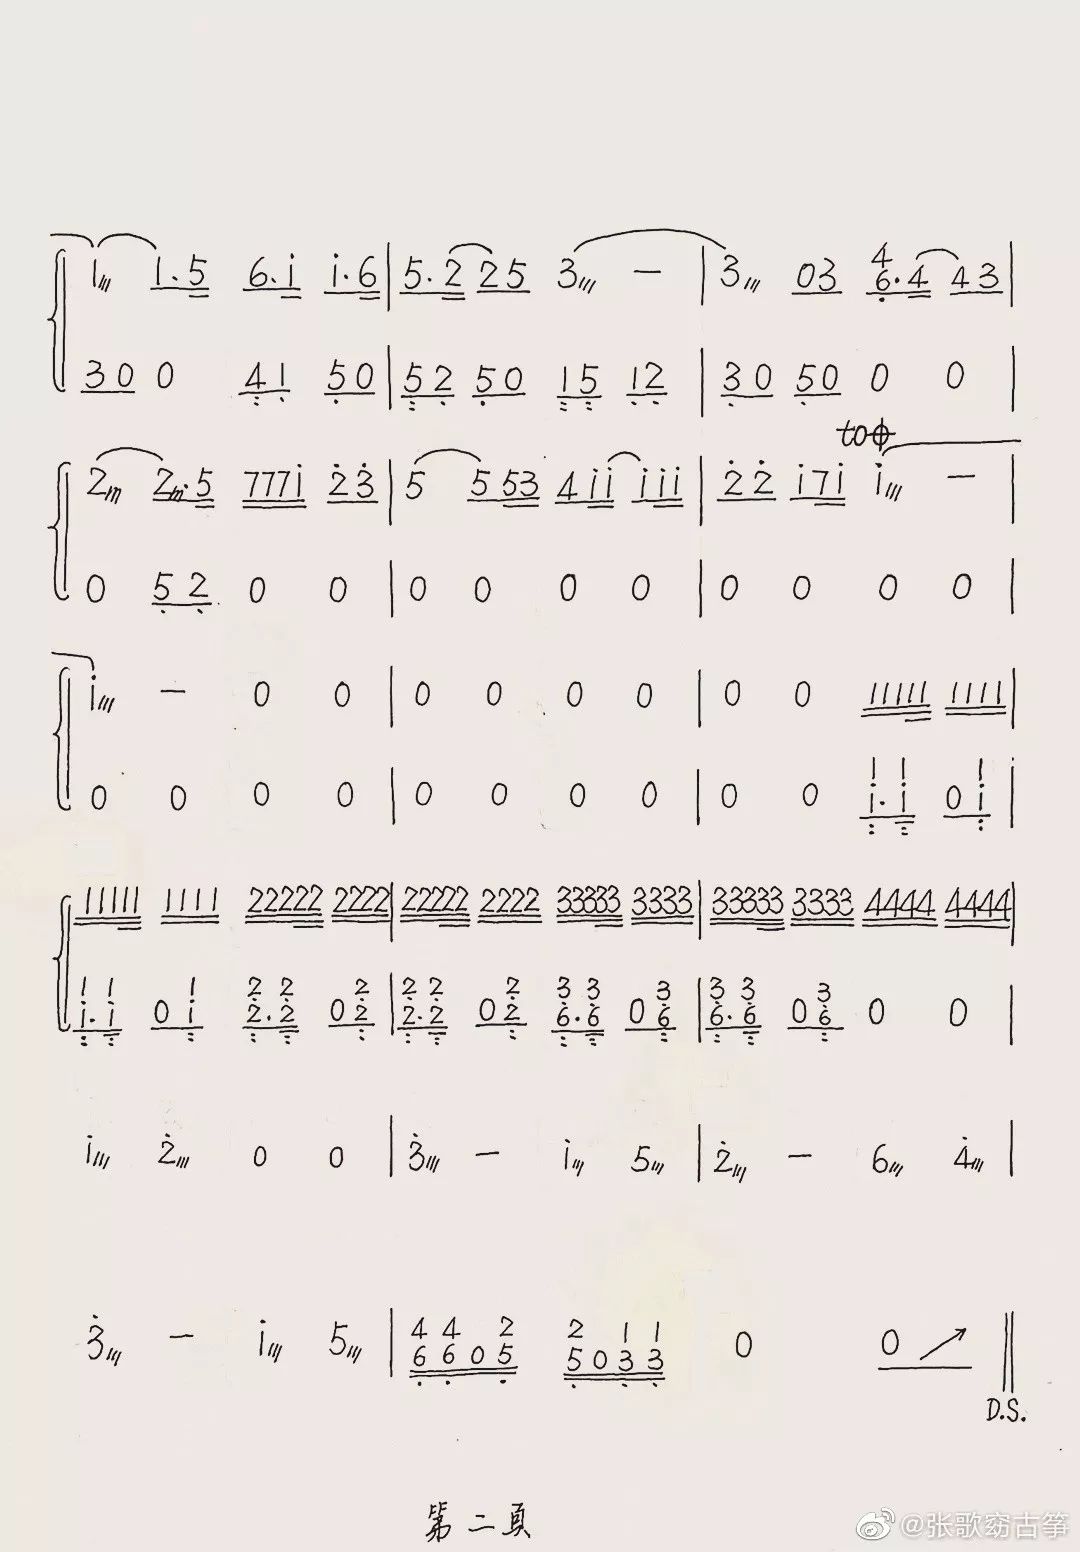 1/// 1.5 6.i i.6 | 5.2 25 3/// — | 3/// 03 4 6.4 43 |
30 0 41 50 | 52 50 15 12 | 30 50 0 0 |
to⌽
2/// 2///.5 777i 23 | 5 553 4ii iii | 22 i7i i/// — |
0 52 0 0 | 0 0 0 0 | 0 0 0 0 |
i/// — 0 0 | 0 0 0 0 | 0 0 11111 1111 |
0 0 0 0 | 0 0 0 0 | 0 0 1 1 i.i 0 1 i |
11111 1111 22222 2222 | 22222 2222 33333 3333 | 33333 3333 4444 4444 |
1 1 1 2 2 2 2 2 2 3 3 3 3 3 3
i.i 0i 2.2 02 | 2.2 02 6.6 06 | 6.6 06 0 0 |
i/// 2/// 0 0 | 3/// — i/// 5/// | 2/// — 6/// 4/// |
3/// — i/// 5/// | 4 4 2 2 1 1
6605 5033 0 0
D.S.
第二頁
@张歌窈古筝